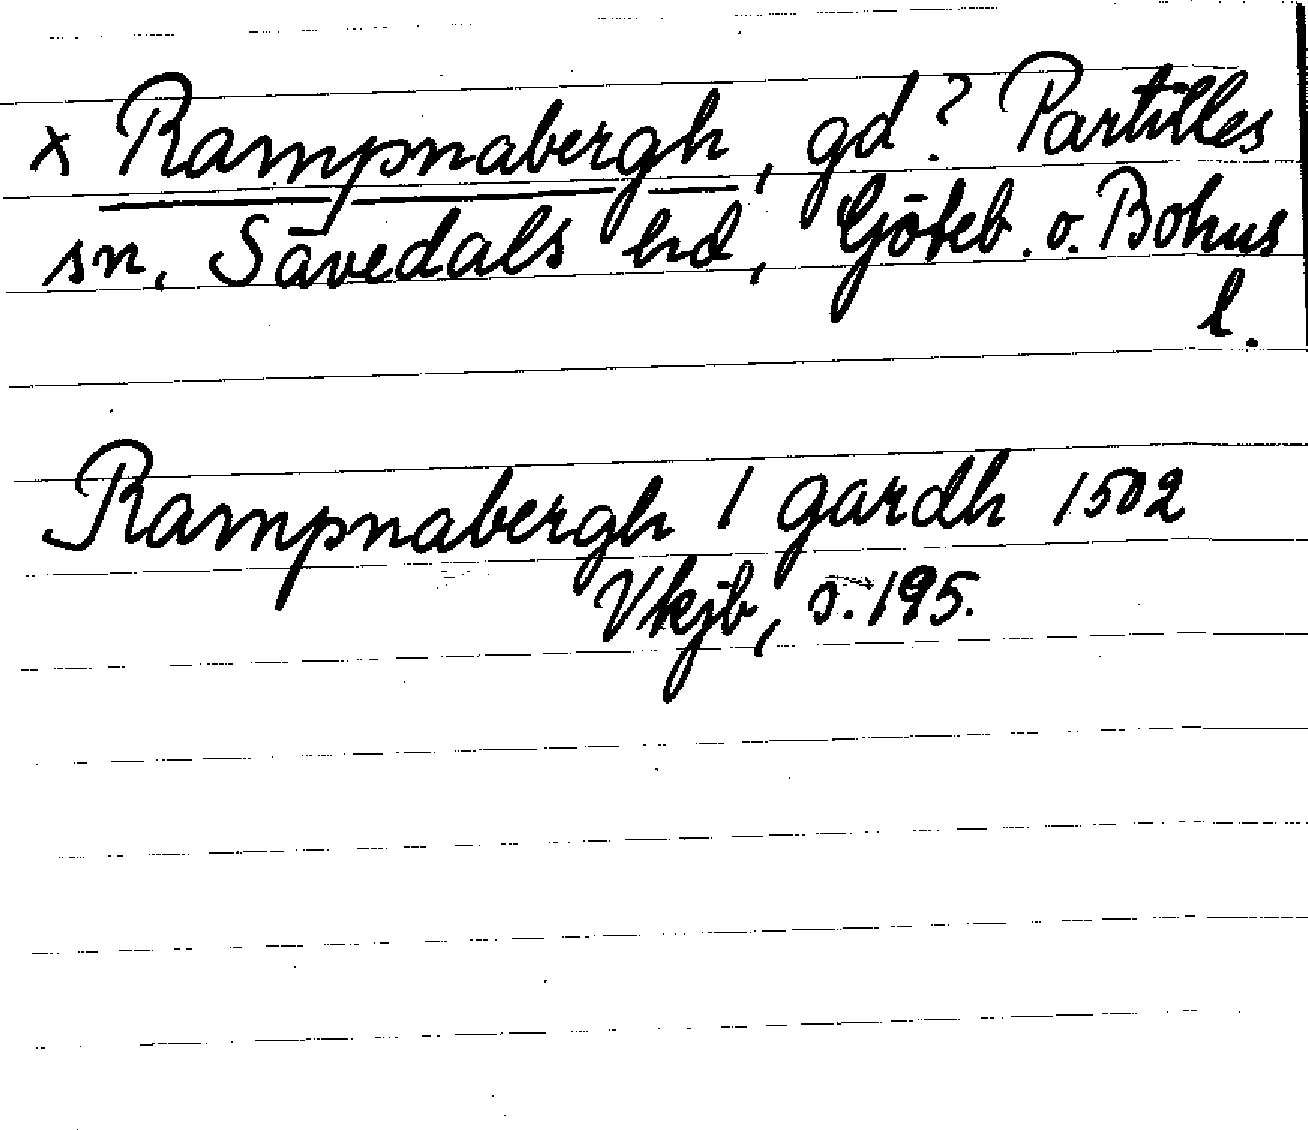 x Rampnabergh, gd? Partilles
sn, Sävedals hd, Göteb. o. Bohus
l.
Rampnabergh 1 gardh 1502
Vkjb, s. 195.